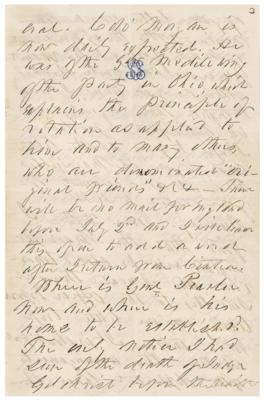 eral. Colo' Morgan is
now daily expected. He
was of the Medill wing
of the Party in Ohio, which
explains the principle of
rotation as applied to
him and to many others,
who are denominated "ori-
ginal friends" &c &c — There
will be no mail for England
before July 2nd and I
this open to add a word
after I return from
Where is Genl.
now and where is his
home to be established?
The only notice I had
seen of the death of Judge
Gilchrist before the